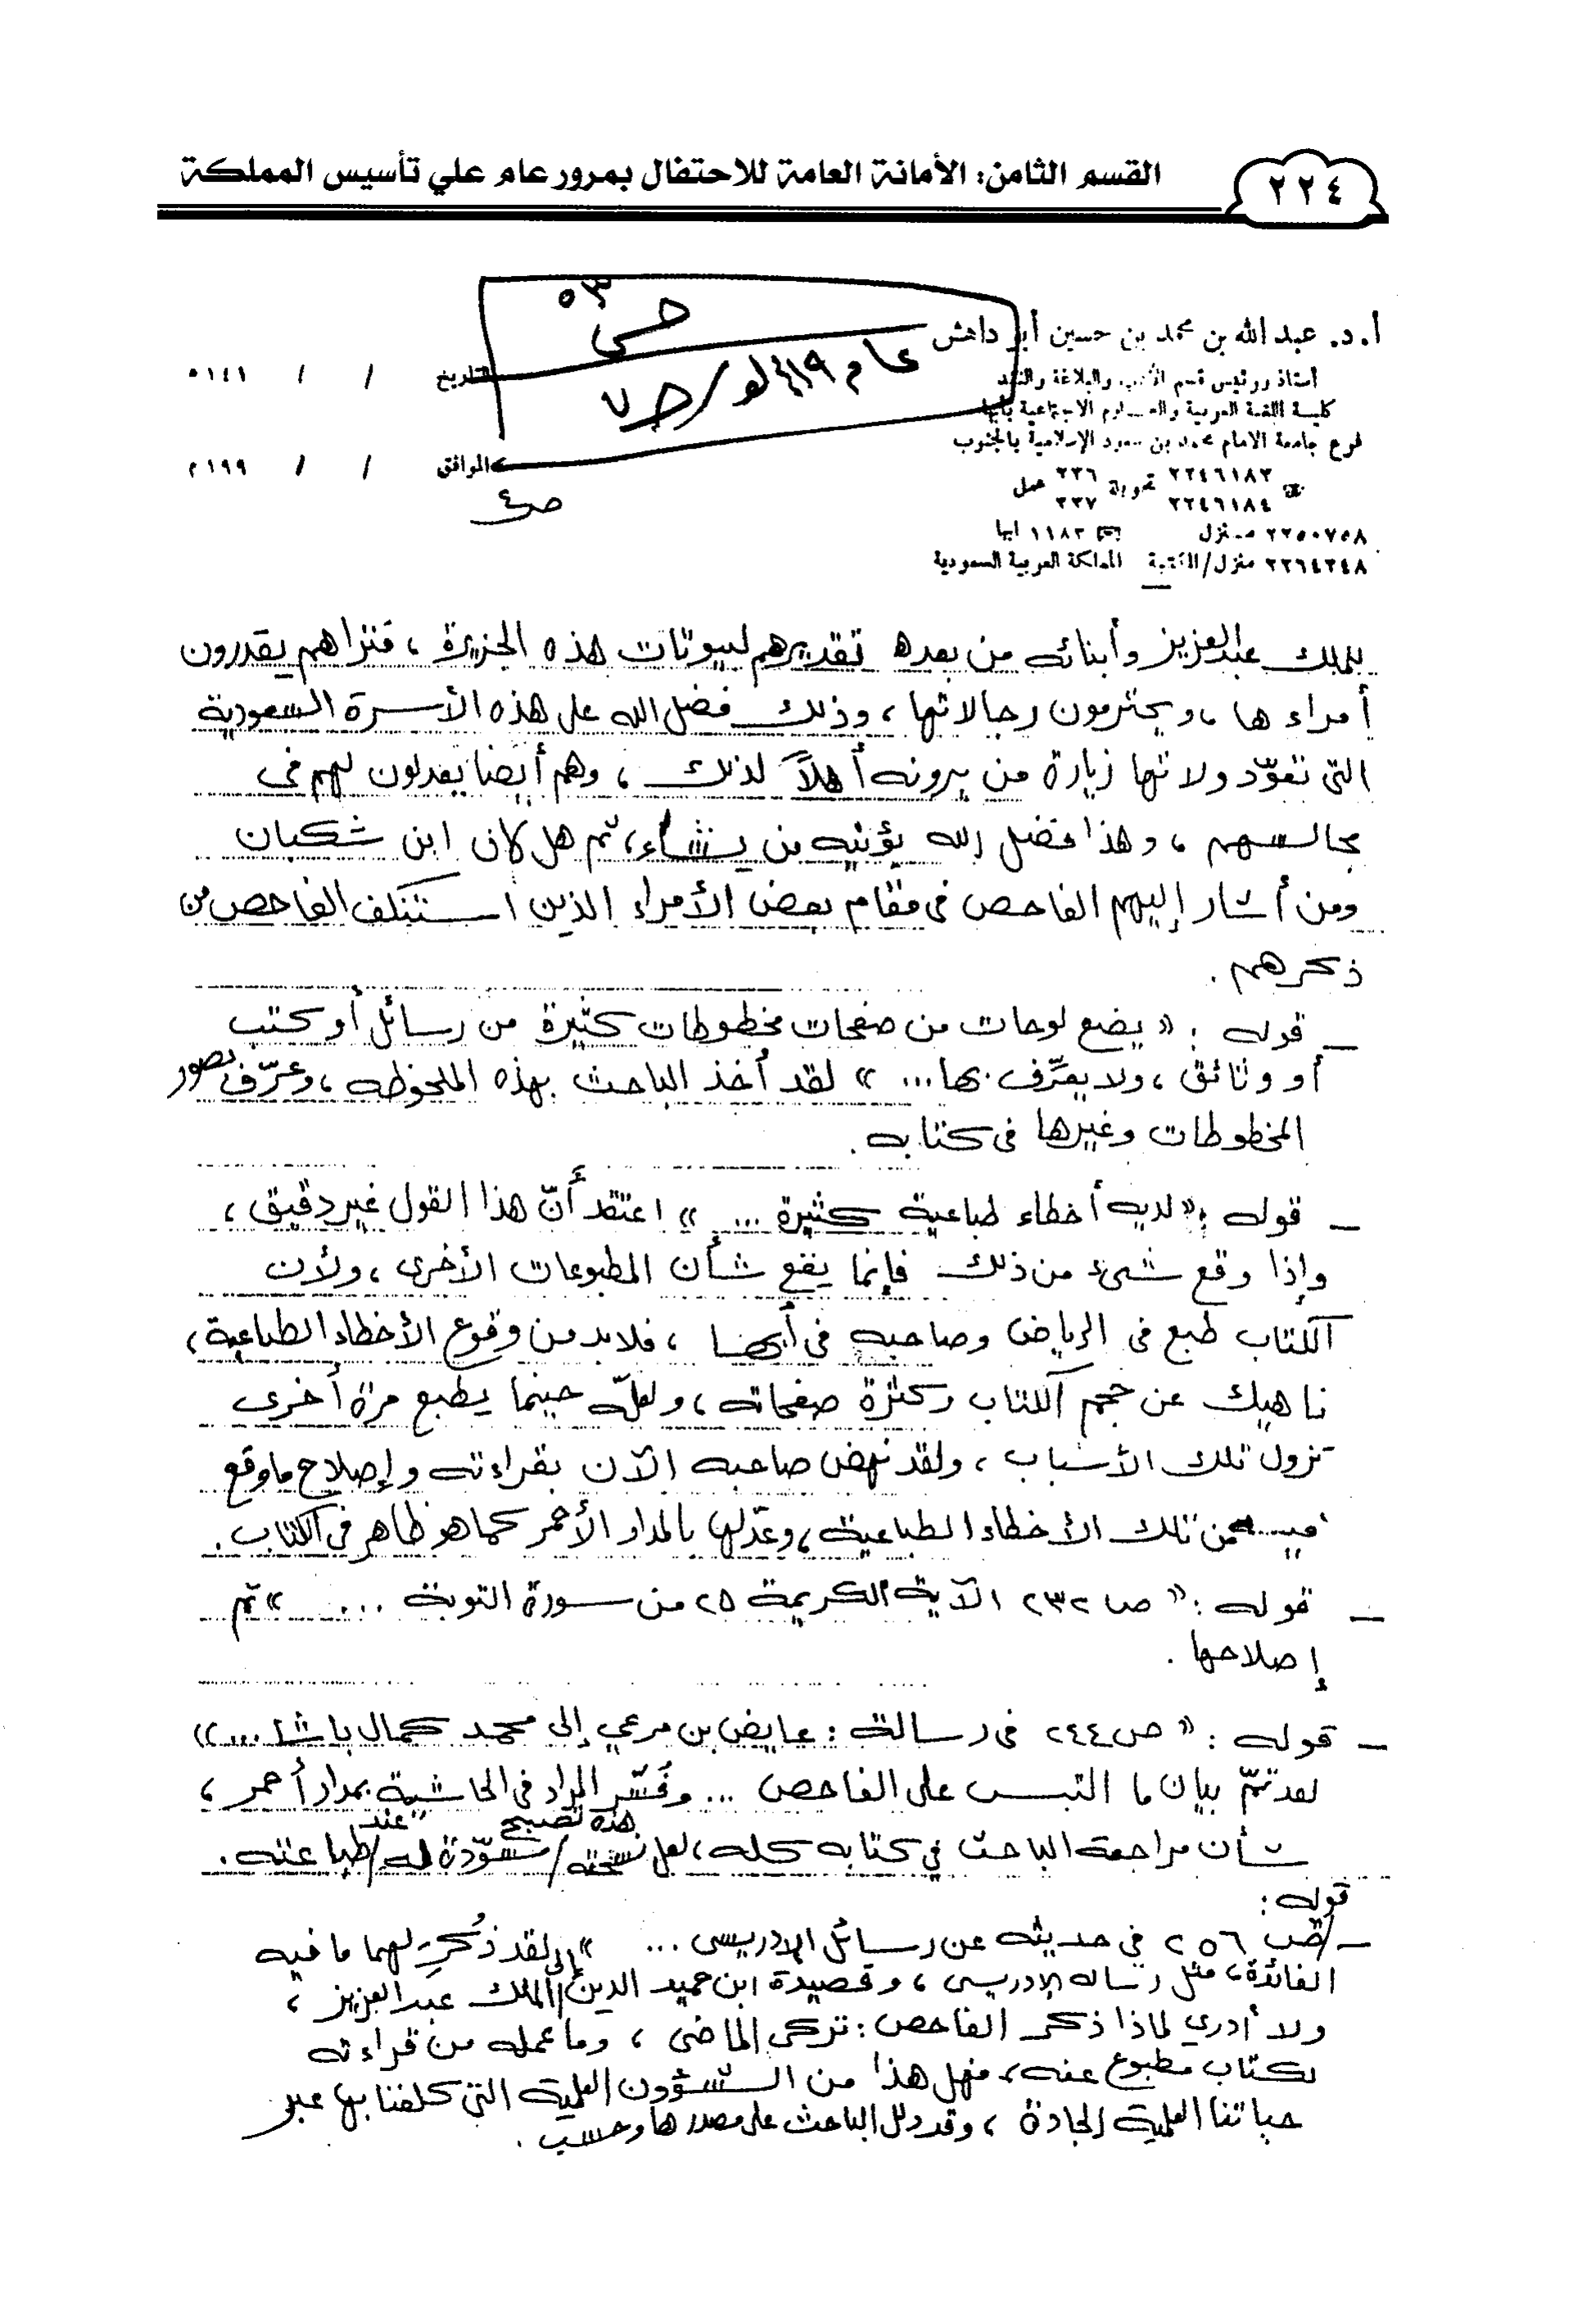 ٢٢٤
القسم الثامن: الأمانة العامة للاحتفال بمرور عام علي تأسيس المملكة
أ.د. عبد الله بن محمد بن حسين أبو داهش
أستاذ ورئيس قسم الأدب والبلاغة والنقد
كلية اللغة العربية والعلوم الاجتماعية بأبها
فرع جامعة الامام محمد بن سعود الإسلامية بالجنوب
٢٢٤٦١٨٣ تحويلة ٢٣٦ عمل
٢٢٤٦١٨٤ ٢٣٧
٢٢٥٠٧٥٨ منزل ١١٨٣ ابها
٢٢٦٤٢٤٨ منزل/المكتبة المملكة العربية السعودية
التاريخ / / ١٤١هـ
الموافق / / ١٩٩م
٥٣
عام ١٤١٩هـ / ص ٧
ص٤
للملك عبدالعزيز وأبنائه من بعده تقديرهم لبيوتات هذه الجزيرة ، فتراهم يقدرون
أمراءها ، ويحترمون رجالاتها ، وذلك فضل الله على هذه الأسرة السعودية
التي تعوّد ولاتها زيارة من يرونه أهلاً لذلك ، وهم أيضا يعدلون لهم في
مجالسهم ، وهذا فضل الله يؤتيه من يشاء، ثم هل كان ابن شكبان
ومن أشار إليهم الفاحص في مقام بعض الأمراء الذين استنكف الفاحص من
ذكرهم .
ــ قوله : « يضع لوحات من صفحات مخطوطات كثيرة من رسائل أو كتب
أو وثائق ، ولا يعرِّف بها ... » لقد أخذ الباحث بهذه الملحوظه ، وعرّف بصور
المخطوطات وغيرها في كتابه .
ــ قوله : « لديه أخطاء طباعية كثيرة ... » اعتقد أنّ هذا القول غير دقيق ،
وإذا وقع شيء من ذلك فإنما يقع شأن المطبوعات الأخرى ، ولأن
الكتاب طبع في الرياض وصاحبه في أبها ، فلابد من وقوع الأخطاء الطباعية ،
ناهيك عن حجم الكتاب وكثرة صفحاته ، ولعلّه حينما يطبع مرة أخرى
تزول تلك الأسباب ، ولقد نهض صاحبه الآن بقراءته وإصلاح ما وقع
فيه من تلك الأخطاء الطباعية ، وعدّلها بالمداد الأحمر كما هو ظاهر في الكتاب .
ــ قوله : « ص ٢٣٢ الآية الكريمة ٢٥ من سورة التوبة ... » تم
إصلاحها .
ــ قوله : « ص ٢٤٤ في رسالة : عايض بن مرعي إلى محمد كمال باشا ... »
لقد تمّ بيان ما التبس على الفاحص ... وفُسِّر المراد في الحاشية بمداد أحمر ،
شأن مراجعة الباحث في كتابه كله ، لعل نسخته هذه تصبح مسوّدة له عند طباعته .
قوله :
ــ / ص ٢٥٦ في حديثه عن رسائل الإدريسي ... » لقد ذُكِرَ لهما ما فيه
الفائدة ، مثل رساله الإدريسي ، وقصيدة ابن حميد الدين إلى الملك عبدالعزيز ،
ولا أدري لماذا ذكر الفاحص : تركي الماضي ، وما عمله من قراءته
لكتاب مطبوع عنه ، فهل هذا من الشؤون العلمية التي كلفنا بها عبر
حياتنا العلمية الجادة ، وقد دلل الباحث على مصدرها وحسب .